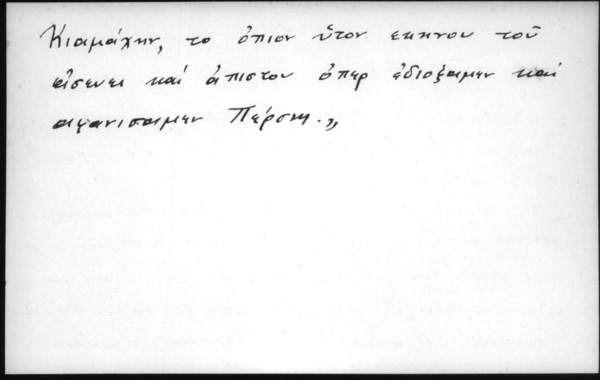 Κιαμάχην, το ὁπιον ὗτον εκηνου τοῦ
ἀσενει καί ἀπιστου ὁπερ ἐδιοξαμεν καί
αφανισαμεν Πέρσην.„